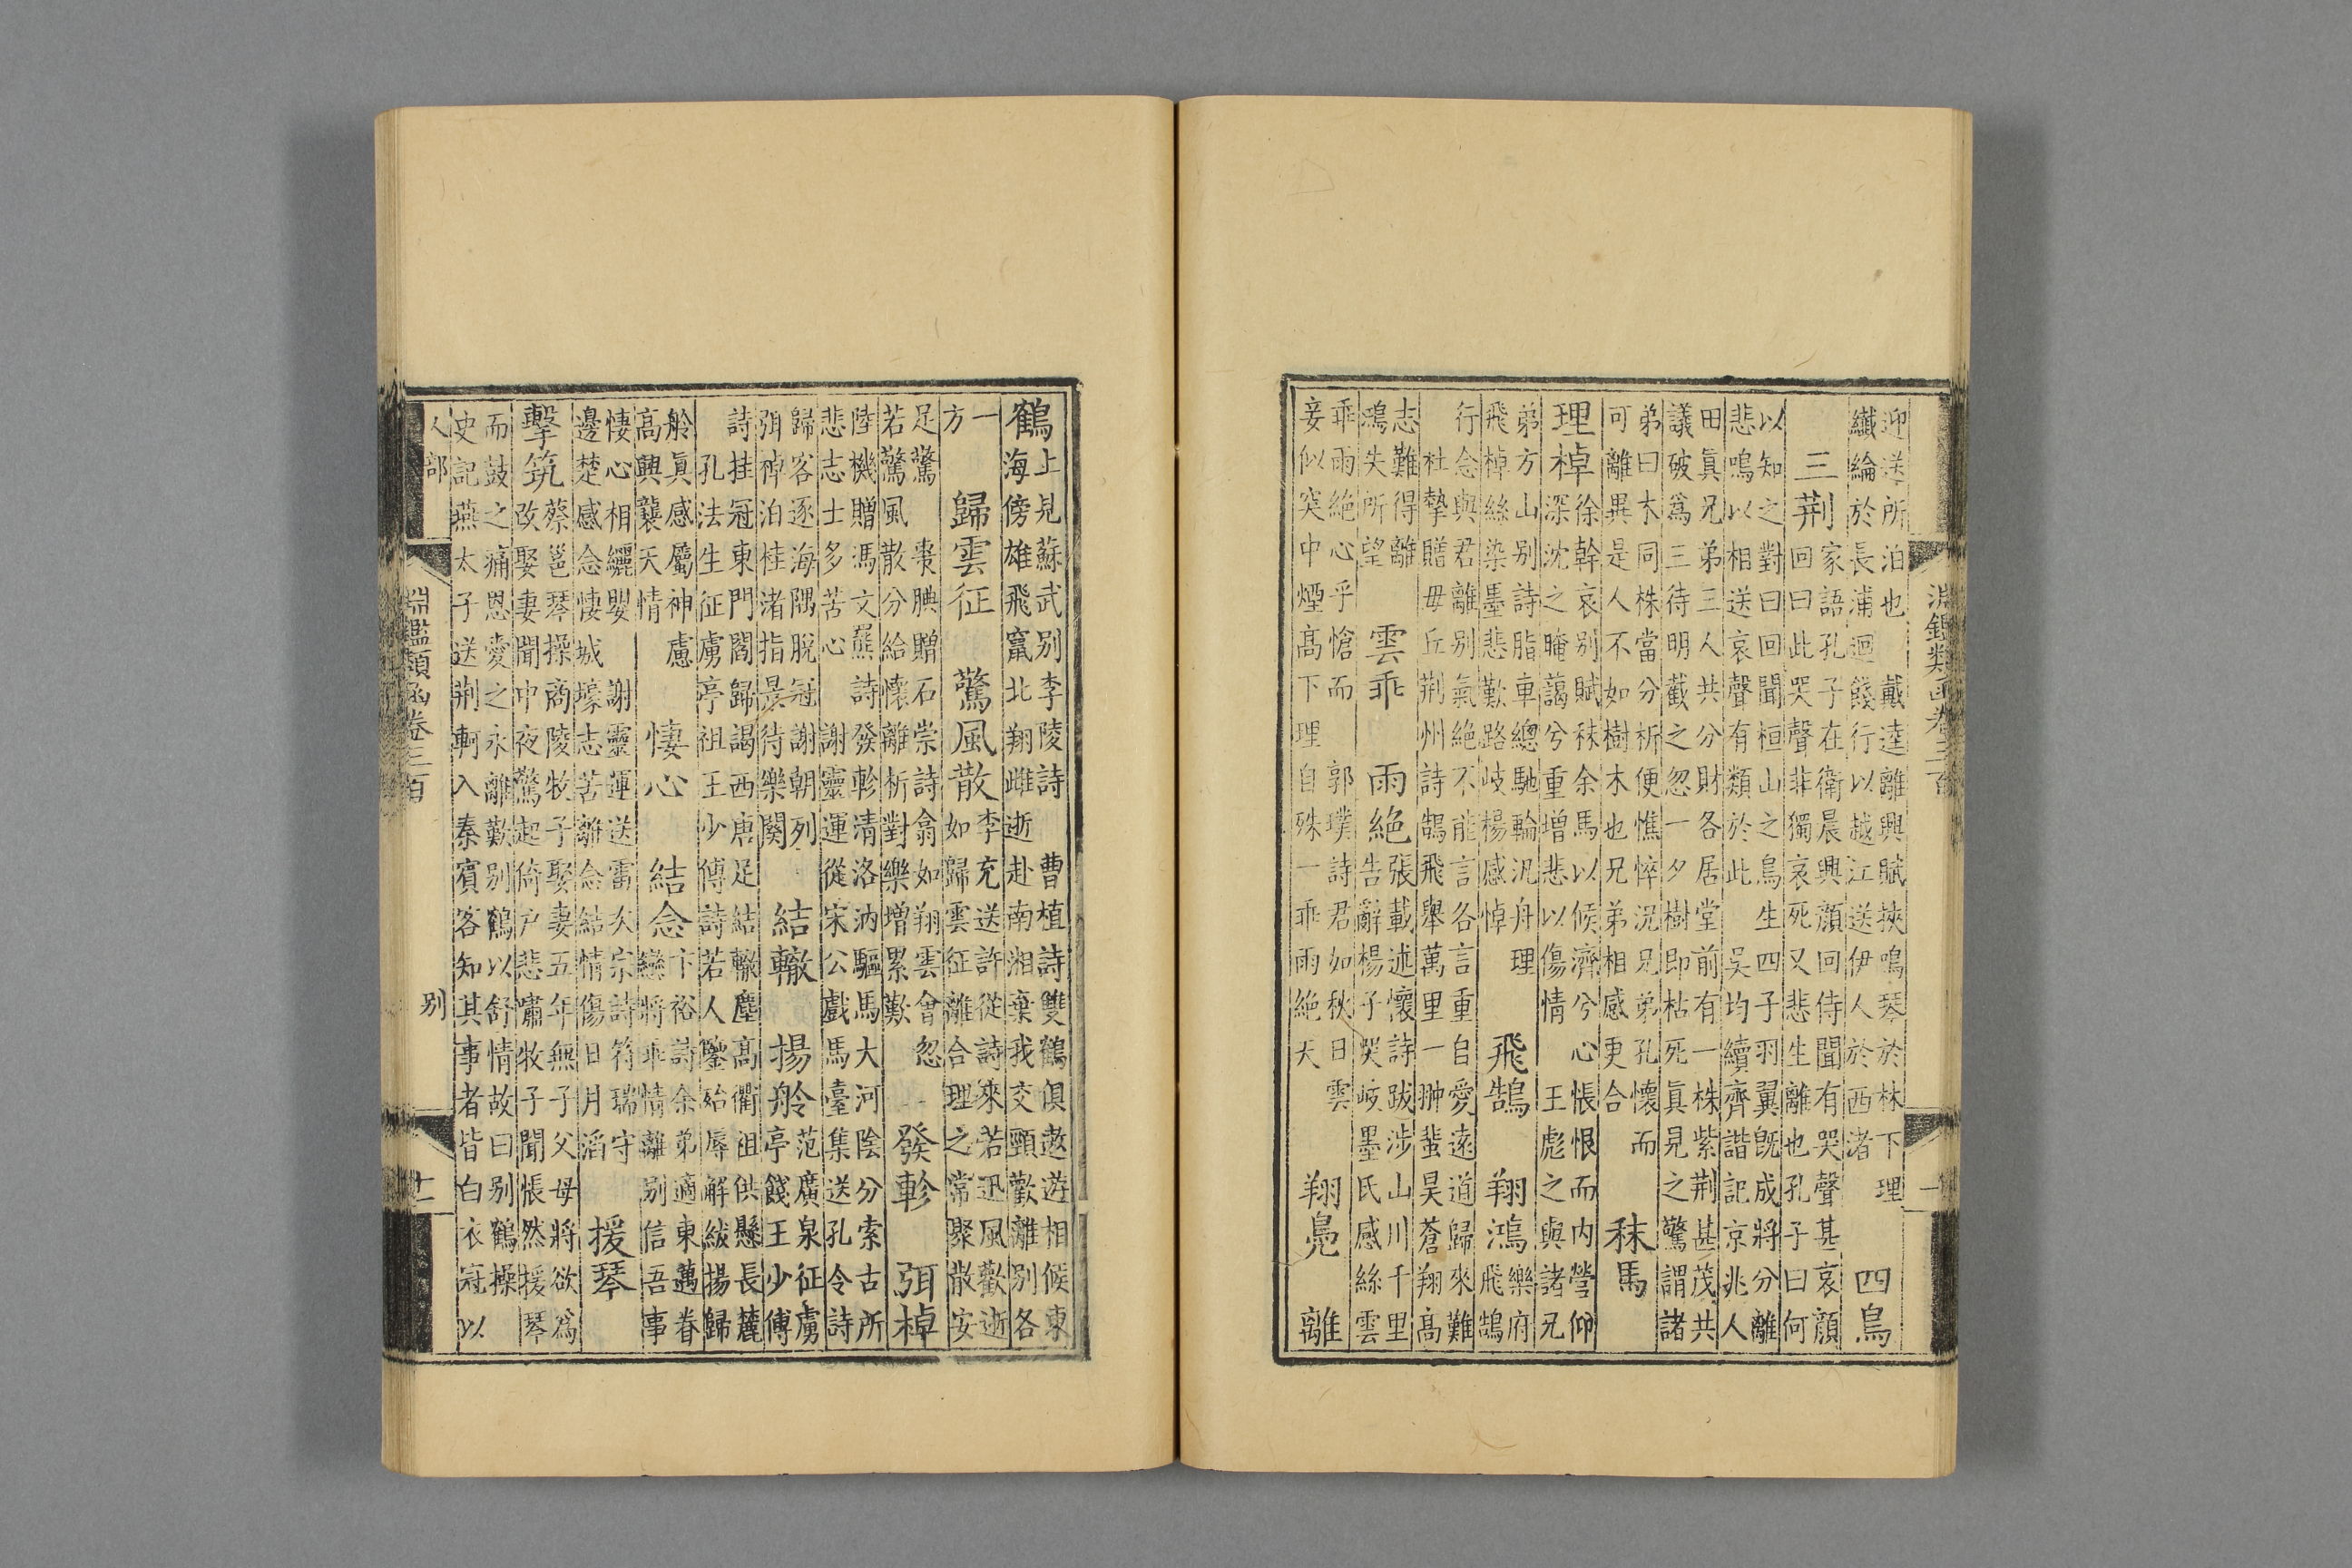 淵鑑類函卷三百
迎送所泊也 戴逵離興賦挾鳴琴於林下理
纖綸於長浦迴餞行以越江送伊人於西渚
四鳥
三荆
家語孔子在衛晨興顔回侍聞有哭聲甚哀顔
回回曰此哭聲非獨哀死又悲生離也孔子曰何
以知之對曰回聞桓山之鳥生四子羽翼既成將分離
悲鳴以相送哀聲有類於此 吳均續齊諧記京兆人
田眞兄弟三人共分財各居堂前有一株紫荆甚茂共
議破爲三待明截之忽一夕樹即枯死眞見之驚謂諸
弟曰木同株當分析便憔悴況兄弟孔懷而
可離異是人不如樹木也兄弟相感更合
秣馬
理棹
徐幹哀别賦秣余馬以候濟兮心悵恨而内營仰
深沈之晻藹兮重增悲以傷情 王彪之與諸兄
弟方山别詩脂車總馳輪汎舟理
飛棹絲染墨悲歎路岐楊感悼
飛鵠 翔鴻
樂府
飛鵠
行念與君離别氣絶不能言各言重自愛遠道歸來難
杜摯贈毋丘荆州詩鵠飛舉萬里一翀蜚昊蒼翔高
志難得離
鴻失所望
雲乖 雨絶
張載述懷詩跋涉山川千里
告辭楊子哭岐墨氏感絲雲
乖雨絶心乎愴而 郭璞詩君如秋日雲
妾似突中煙高下理自殊一乖雨絶天
翔鳧 離
鶴
上見蘇武别李陵詩 曹植詩雙鶴俱遨遊相候東
海傍雄飛竄北翔雌逝赴南湘棄我交頸歡離别各
一
方
歸雲征 驚風散
李充送許從詩來若迅風歡逝
如歸雲征離合理之常聚散安
足驚 棗腆贈石崇詩翕如翔雲會忽
若驚風散分給懷離析對樂增累歎
發軫 弭棹
陸機贈馮文羆詩發軫清洛汭驅馬大河陰分索古所
悲志士多苦心 謝靈運從宋公戲馬臺集送孔令詩
歸客逐海隅脱冠謝朝列
弭棹泊桂渚指景待樂闋
結轍 揚舲
范廣泉征虜
亭餞王少傅
詩挂冠東門閣歸謁西唐足結轍塵高衢祖供懸長麓
孔法生征虜亭祖王少傅詩若人鑒殆辱解紱揚歸
舲眞感屬神慮
高興襲天情
悽心 結念
卞裕詩余弟適東邁眷
戀將乖情離别信吾事
悽心相纚嬰 謝靈運送雷次宗詩符瑞守
邊楚感念悽城壕志苦離念結情傷日月滔
援琴
擊筑
蔡邕琴操商陵牧子娶妻五年無子父母將欲爲
改娶妻聞中夜驚起倚户悲嘯牧子聞悵然援琴
而鼓之痛恩愛之永離歎别鶴以舒情故曰别鶴操
史記燕太子送荆軻入秦賓客知其事者皆白衣冠以
人部
淵鑑類函卷三百
别
十一